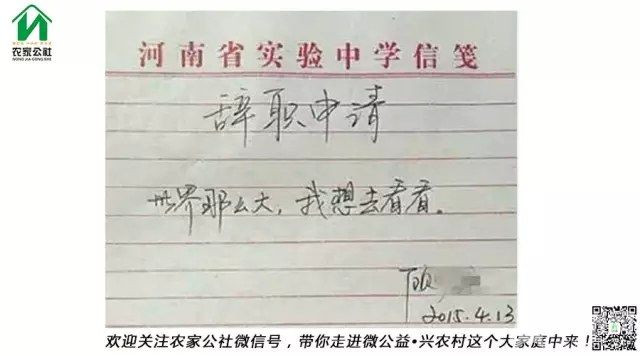 农家公社
NONG JIA GONG SHE
河南省实验中学信笺
辞职申请
世界那么大，我想去看看。
顾
2015.4.13
欢迎关注农家公社微信号，带你走进微公益•兴农村这个大家庭中来！